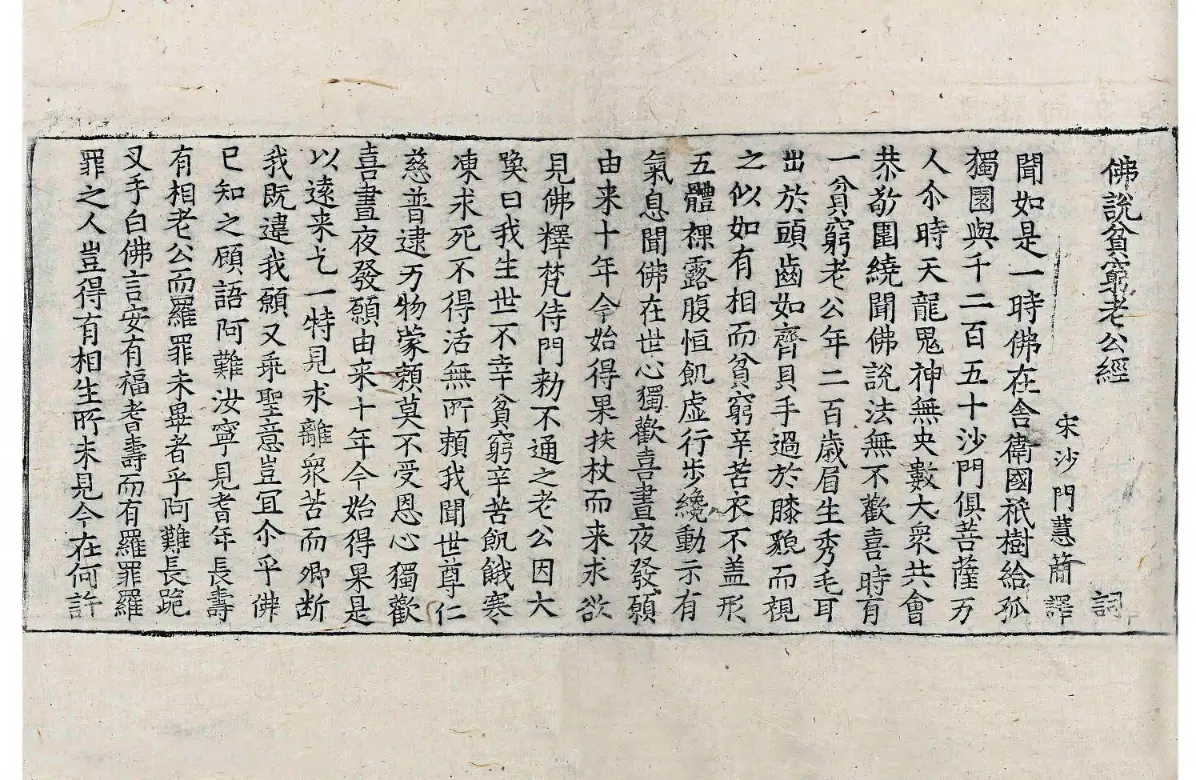 佛說貧窮老公經 詞
宋沙門慧簡譯
聞如是一時佛在舍衛國祇樹給孤
獨園與千二百五十沙門俱菩薩万
人尒時天龍鬼神無央數大衆共會
恭敬圍繞聞佛說法無不歡喜時有
一貧窮老公年二百歲眉生秀毛耳
出於頭齒如齊貝手過於膝貌而視
之似如有相而貧窮辛苦衣不盖形
五體裸露腹恒飢虛行步纔動示有
氣息聞佛在世心獨歡喜晝夜發願
由来十年今始得果扶杖而来求欲
見佛釋梵侍門勑不通之老公因大
喚曰我生世不幸貧窮辛苦飢餓寒
凍求死不得活無所賴我聞世尊仁
慈普逮万物蒙賴莫不受恩心獨歡
喜晝夜發願由来十年今始得果是
以遠来乞一特見求離衆苦而卿断
我既違我願又乖聖意豈宜尒乎佛
已知之顧語阿難汝寧見耆年長壽
有相老公而羅罪未畢者乎阿難長跪
叉手白佛言安有福耆壽而有羅罪羅
罪之人豈得有相生所未見今在何許